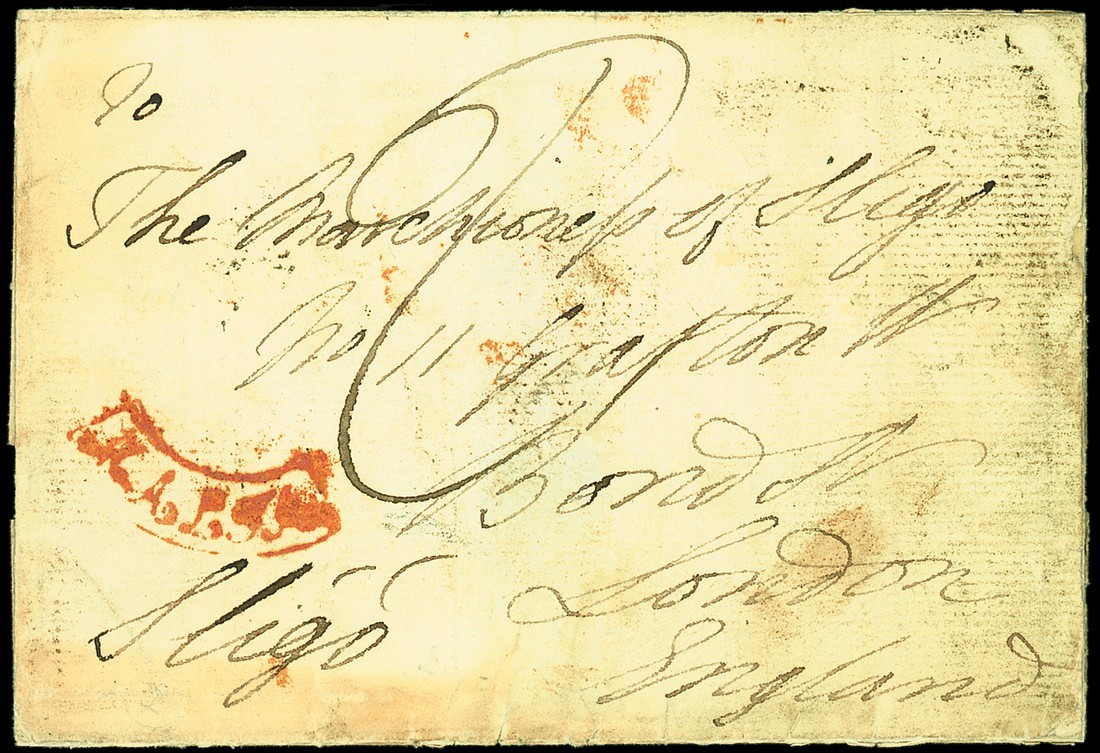 To
The Marchioneſs of Sligo
No 11 Grafton St
Bond St
London
England
Sligo